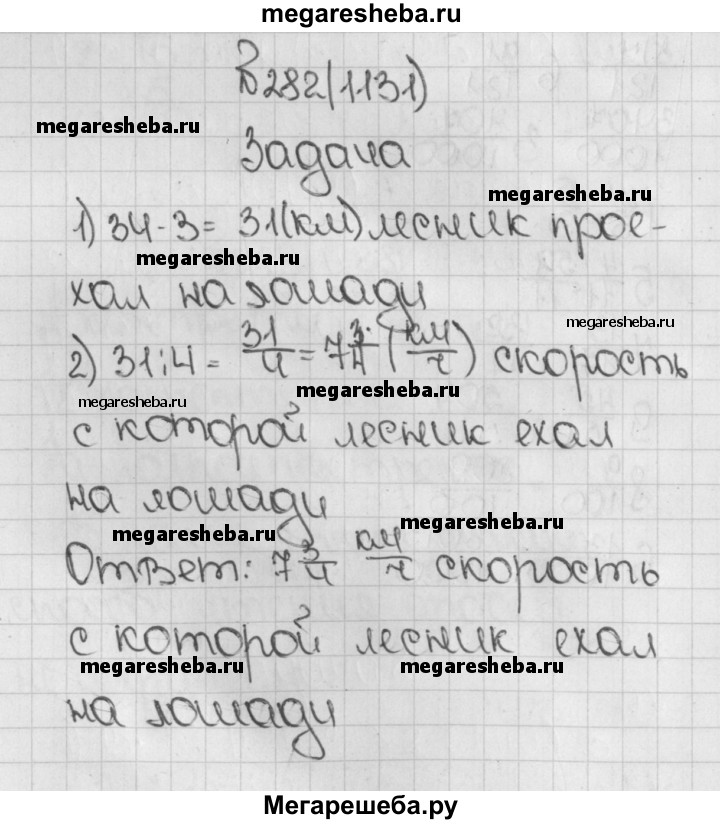 megaresheba.ru
№ 282(1131)
megaresheba.ru
Задача
megaresheba.ru
1) 34-3= 31(км) лесник прое-
megaresheba.ru
хал на лошади
megaresheba.ru
2) 31:4 = 31/4 = 7 3/4 (км/ч) скорость
megaresheba.ru
megaresheba.ru
с которой лесник ехал
на лошади
megaresheba.ru
megaresheba.ru
Ответ: 7 3/4 км/ч скорость
с которой лесник ехал
megaresheba.ru
megaresheba.ru
на лошади
Мегарешеба.ру